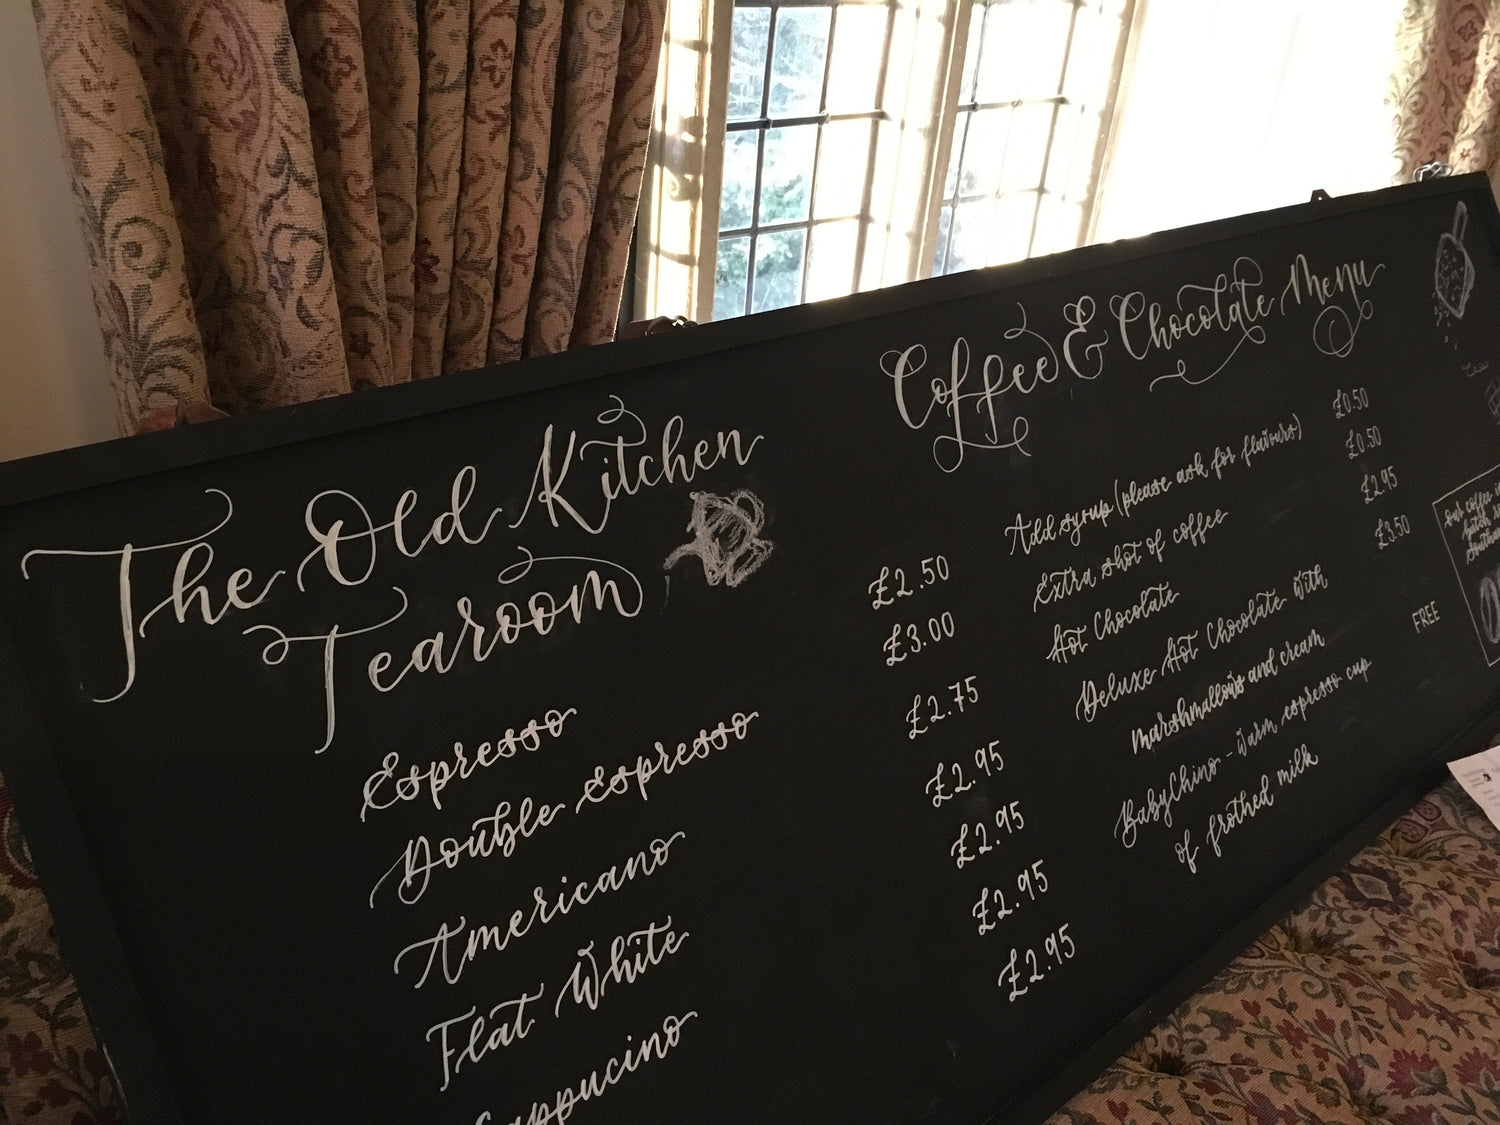 The Old Kitchen
Tearoom
Espresso £2.50
Double Espresso £3.00
Americano £2.75
Flat White £2.95
Cappucino £2.95
£2.95
£2.95
Coffee & Chocolate Menu
Add syrup (please ask for flavours) £0.50
Extra shot of coffee £0.50
Hot Chocolate £2.95
Deluxe Hot Chocolate with £3.50
marshmallows and cream
BabyChino - Warm espresso cup FREE
of frothed milk
our coffee